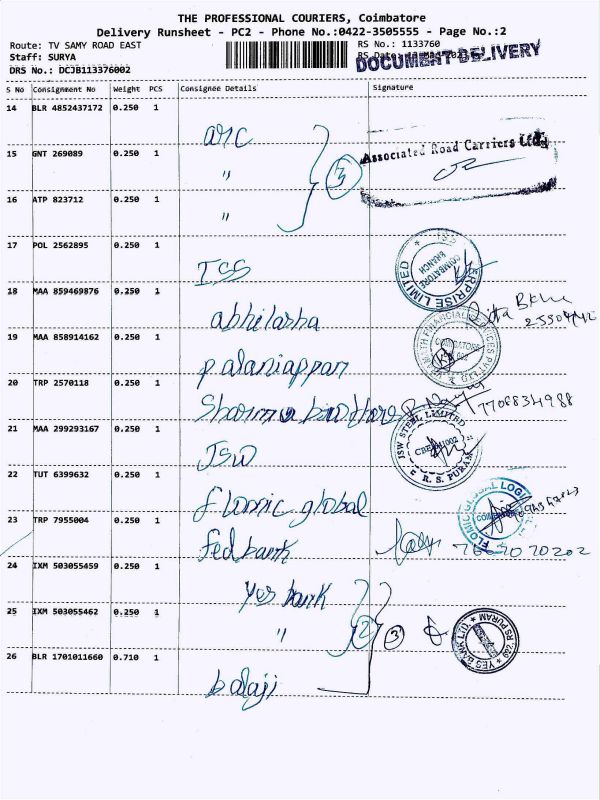 THE PROFESSIONAL COURIERS, Coimbatore
Delivery Runsheet - PC2 - Phone No.:0422-3505555 - Page No.:2
Route: TV SAMY ROAD EAST
RS No.: 1133760
Staff: SURYA
RS Date:
DOCUMENT DELIVERY
DRS No.: DCJB113376002
S No Consignment No Weight PCS Consignee Details Signature
14 BLR 4852437172 0.250 1 arc
Associated Road Carriers Ltd.,
15 GNT 269089 0.250 1 "
3
16 ATP 823712 0.250 1 "
17 POL 2562895 0.250 1 ISS
COIMBATORE BRANCH
18 MAA 859469876 0.250 1 abhilasha
19 MAA 858914162 0.250 1 palaniappan
20 TRP 2570118 0.250 1 Sharma brothers
7708834988
21 MAA 299293167 0.250 1 JSW
JSW STEEL LIMITED
R. S. PURAM
22 TUT 6399632 0.250 1 flomic global
23 TRP 7955004 0.250 1 fed bank
7667070202
24 IXM 503055459 0.250 1 Yes bank
25 IXM 503055462 0.250 1 "
2 3
YES BANK LTD.
RS PURAM
26 BLR 1701011660 0.710 1 balaji